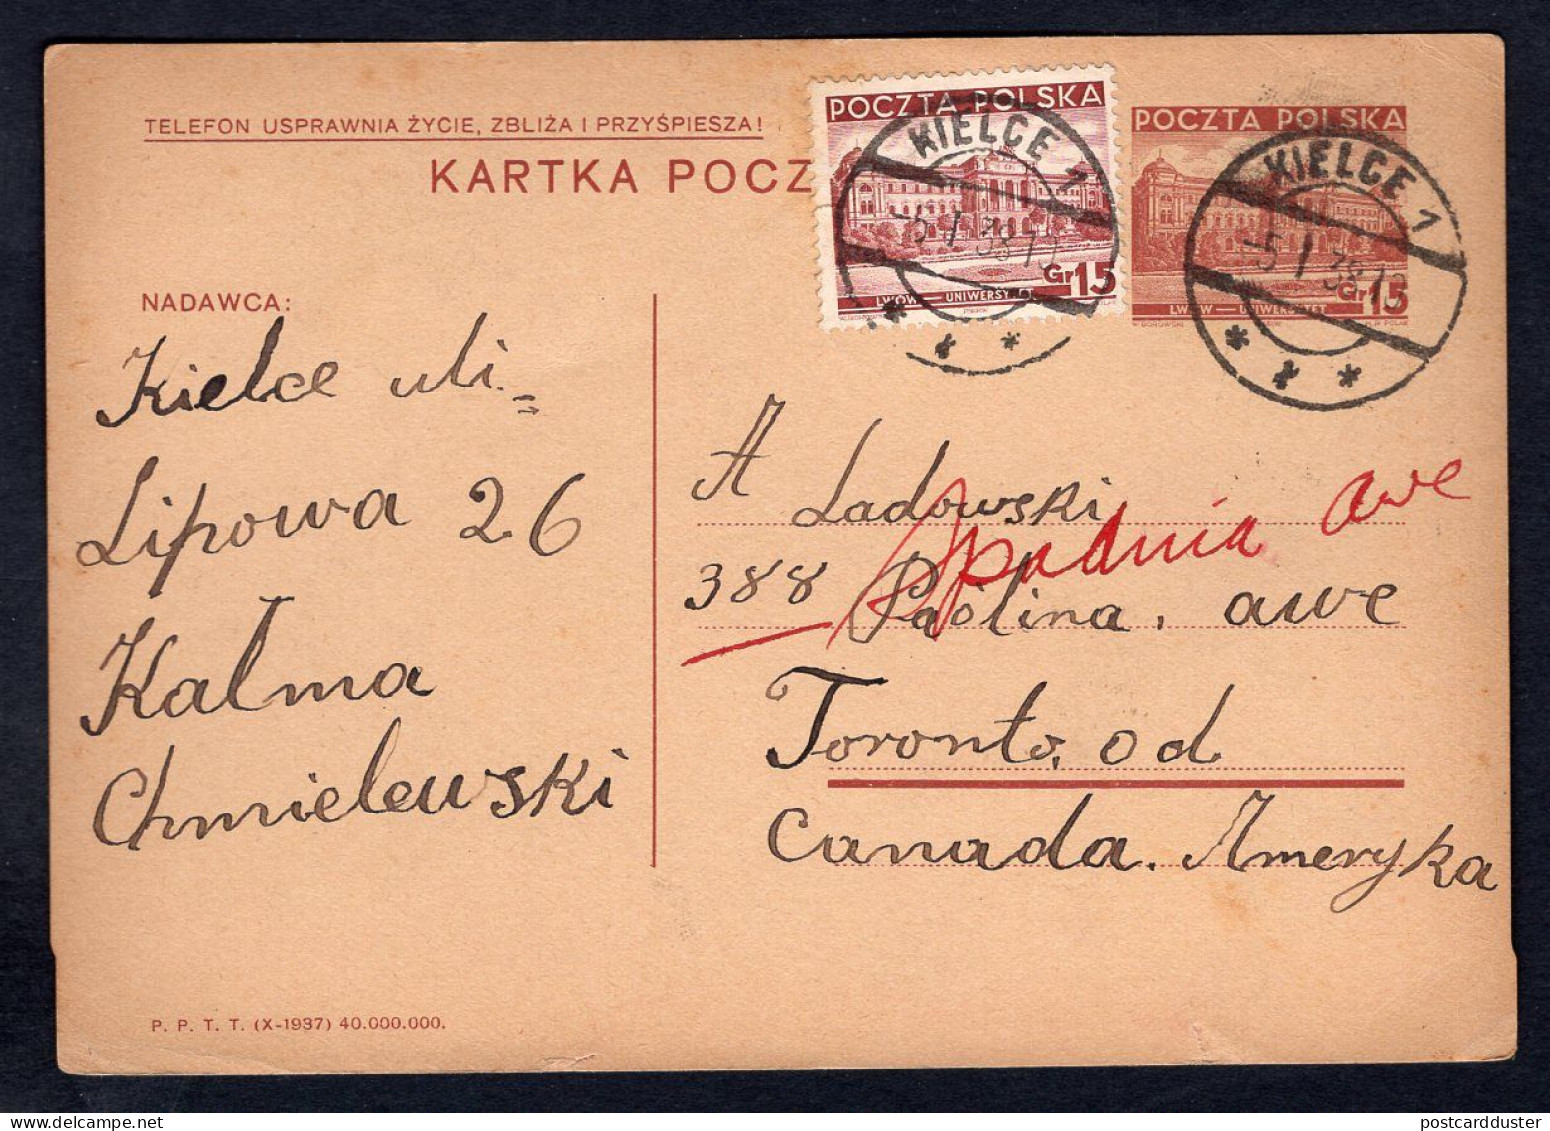 TELEFON USPRAWNIA ŻYCIE, ZBLIŻA I PRZYŚPIESZA!
KARTKA POCZ
POCZTA POLSKA
KIELCE 1
-5 I 38
Gr 15
LWOW — UNIWERSYTET
POCZTA POLSKA
KIELCE 1
-5 I 38
Gr 15
LWOW — UNIWERSYTET
NADAWCA:
Kielce uli
Lipowa 26
Kalma
Chmielewski
A Ladowski
Spadnia ave
388 Paolina, awe
Toronto, od
Canada. Ameryka
P. P. T. T. (X-1937) 40.000.000.
postcardduster